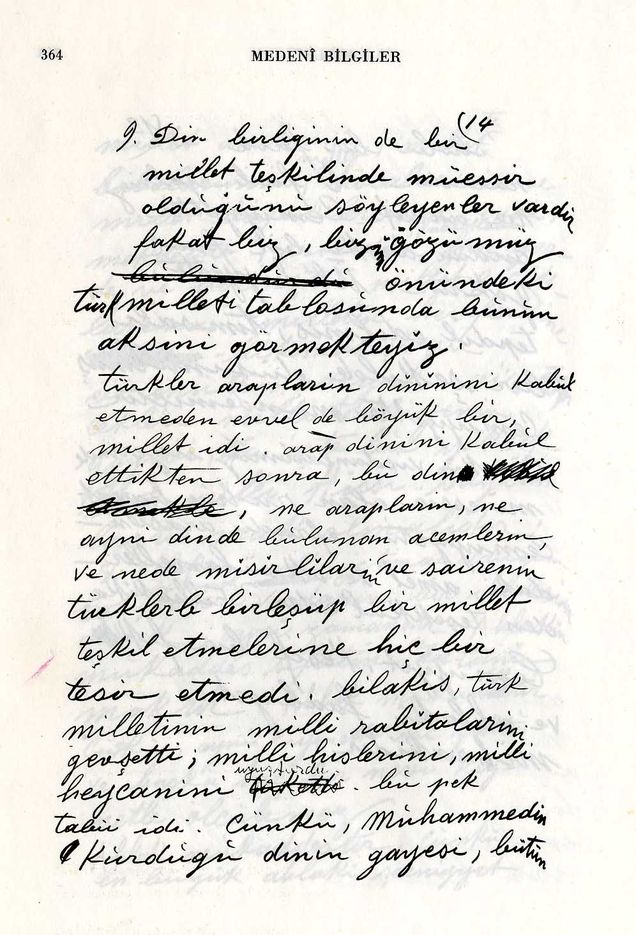 364 MEDENÎ BİLGİLER
(14
9. Din birliginin de bir
millet teşkilinde müessir
olduğunu söyleyenler vardır
fakat biz, bizim gözümüz
önündeki
türk milleti tablosunda bunun
aksini görmekteyiz.
türkler arapların dininini kabul
etmeden evvel de böyük bir,
millet idi. arap dinini kabul
ettikten sonra, bu din
, ne arapların, ne
ayni dinde bulunan acemlerin,
ve nede mısırlıların ve sairenin
türklerle birleşüp bir millet
teşkil etmelerine hiç bir
tesir etmedi. bilakis, türk
milletinin milli rabıtalarını
gevşetti; milli hislerini, milli
uyuşturdu
heycanini . bu pek
tabii idi. Cünkü, Muhammedin
kurduğu dinin gayesi, bütün